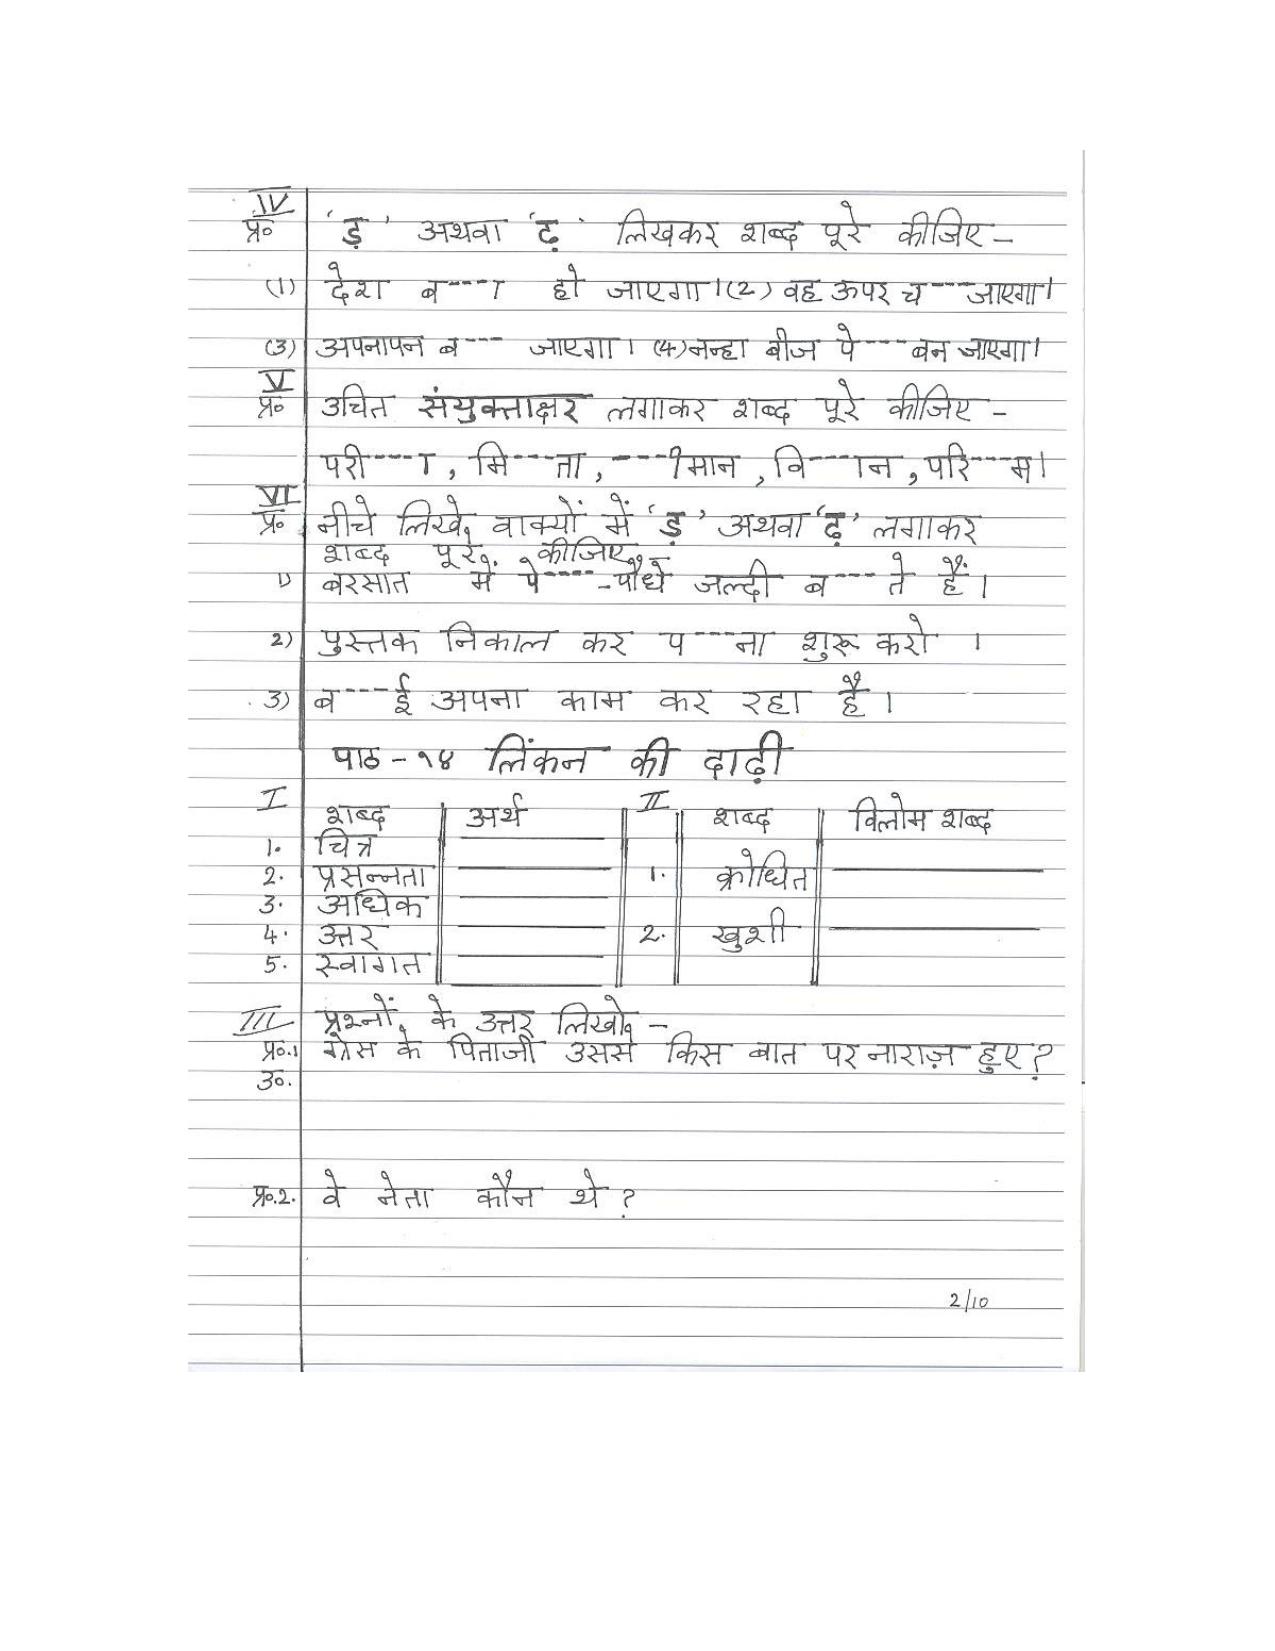 IV
प्र० 'ड़' अथवा 'ढ़' लिखकर शब्द पूरे कीजिए -
(1) देश ब----ा हो जाएगा। (2) वह ऊपर च---जाएगा।
(3) अपनापन ब--- जाएगा। (4) नन्हा बीज पे---बन जाएगा।
V
प्र० उचित संयुक्ताक्षर लगाकर शब्द पूरे कीजिए -
परी----ा, मि---ता, ----ीमान, वि----ान, परि---म।
VI
प्र० नीचे लिखे वाक्यों में 'ड़' अथवा 'ढ़' लगाकर
शब्द पूरे कीजिए -
1) बरसात में पे----पौधे जल्दी ब---ते हैं।
2) पुस्तक निकाल कर प---ना शुरू करो ।
3) ब---ई अपना काम कर रहा है।
पाठ - १४ लिंकन की दाढ़ी
I शब्द अर्थ II शब्द विलोम शब्द
1. चित्र
2. प्रसन्नता 1. क्रोधित
3. अधिक
4. उत्तर 2. खुशी
5. स्वागत
III प्रश्नों के उत्तर लिखो -
प्र०.1 ग्रेस के पिताजी उससे किस बात पर नाराज़ हुए?
उ०.
प्र०.2. वे नेता कौन थे?
2/10